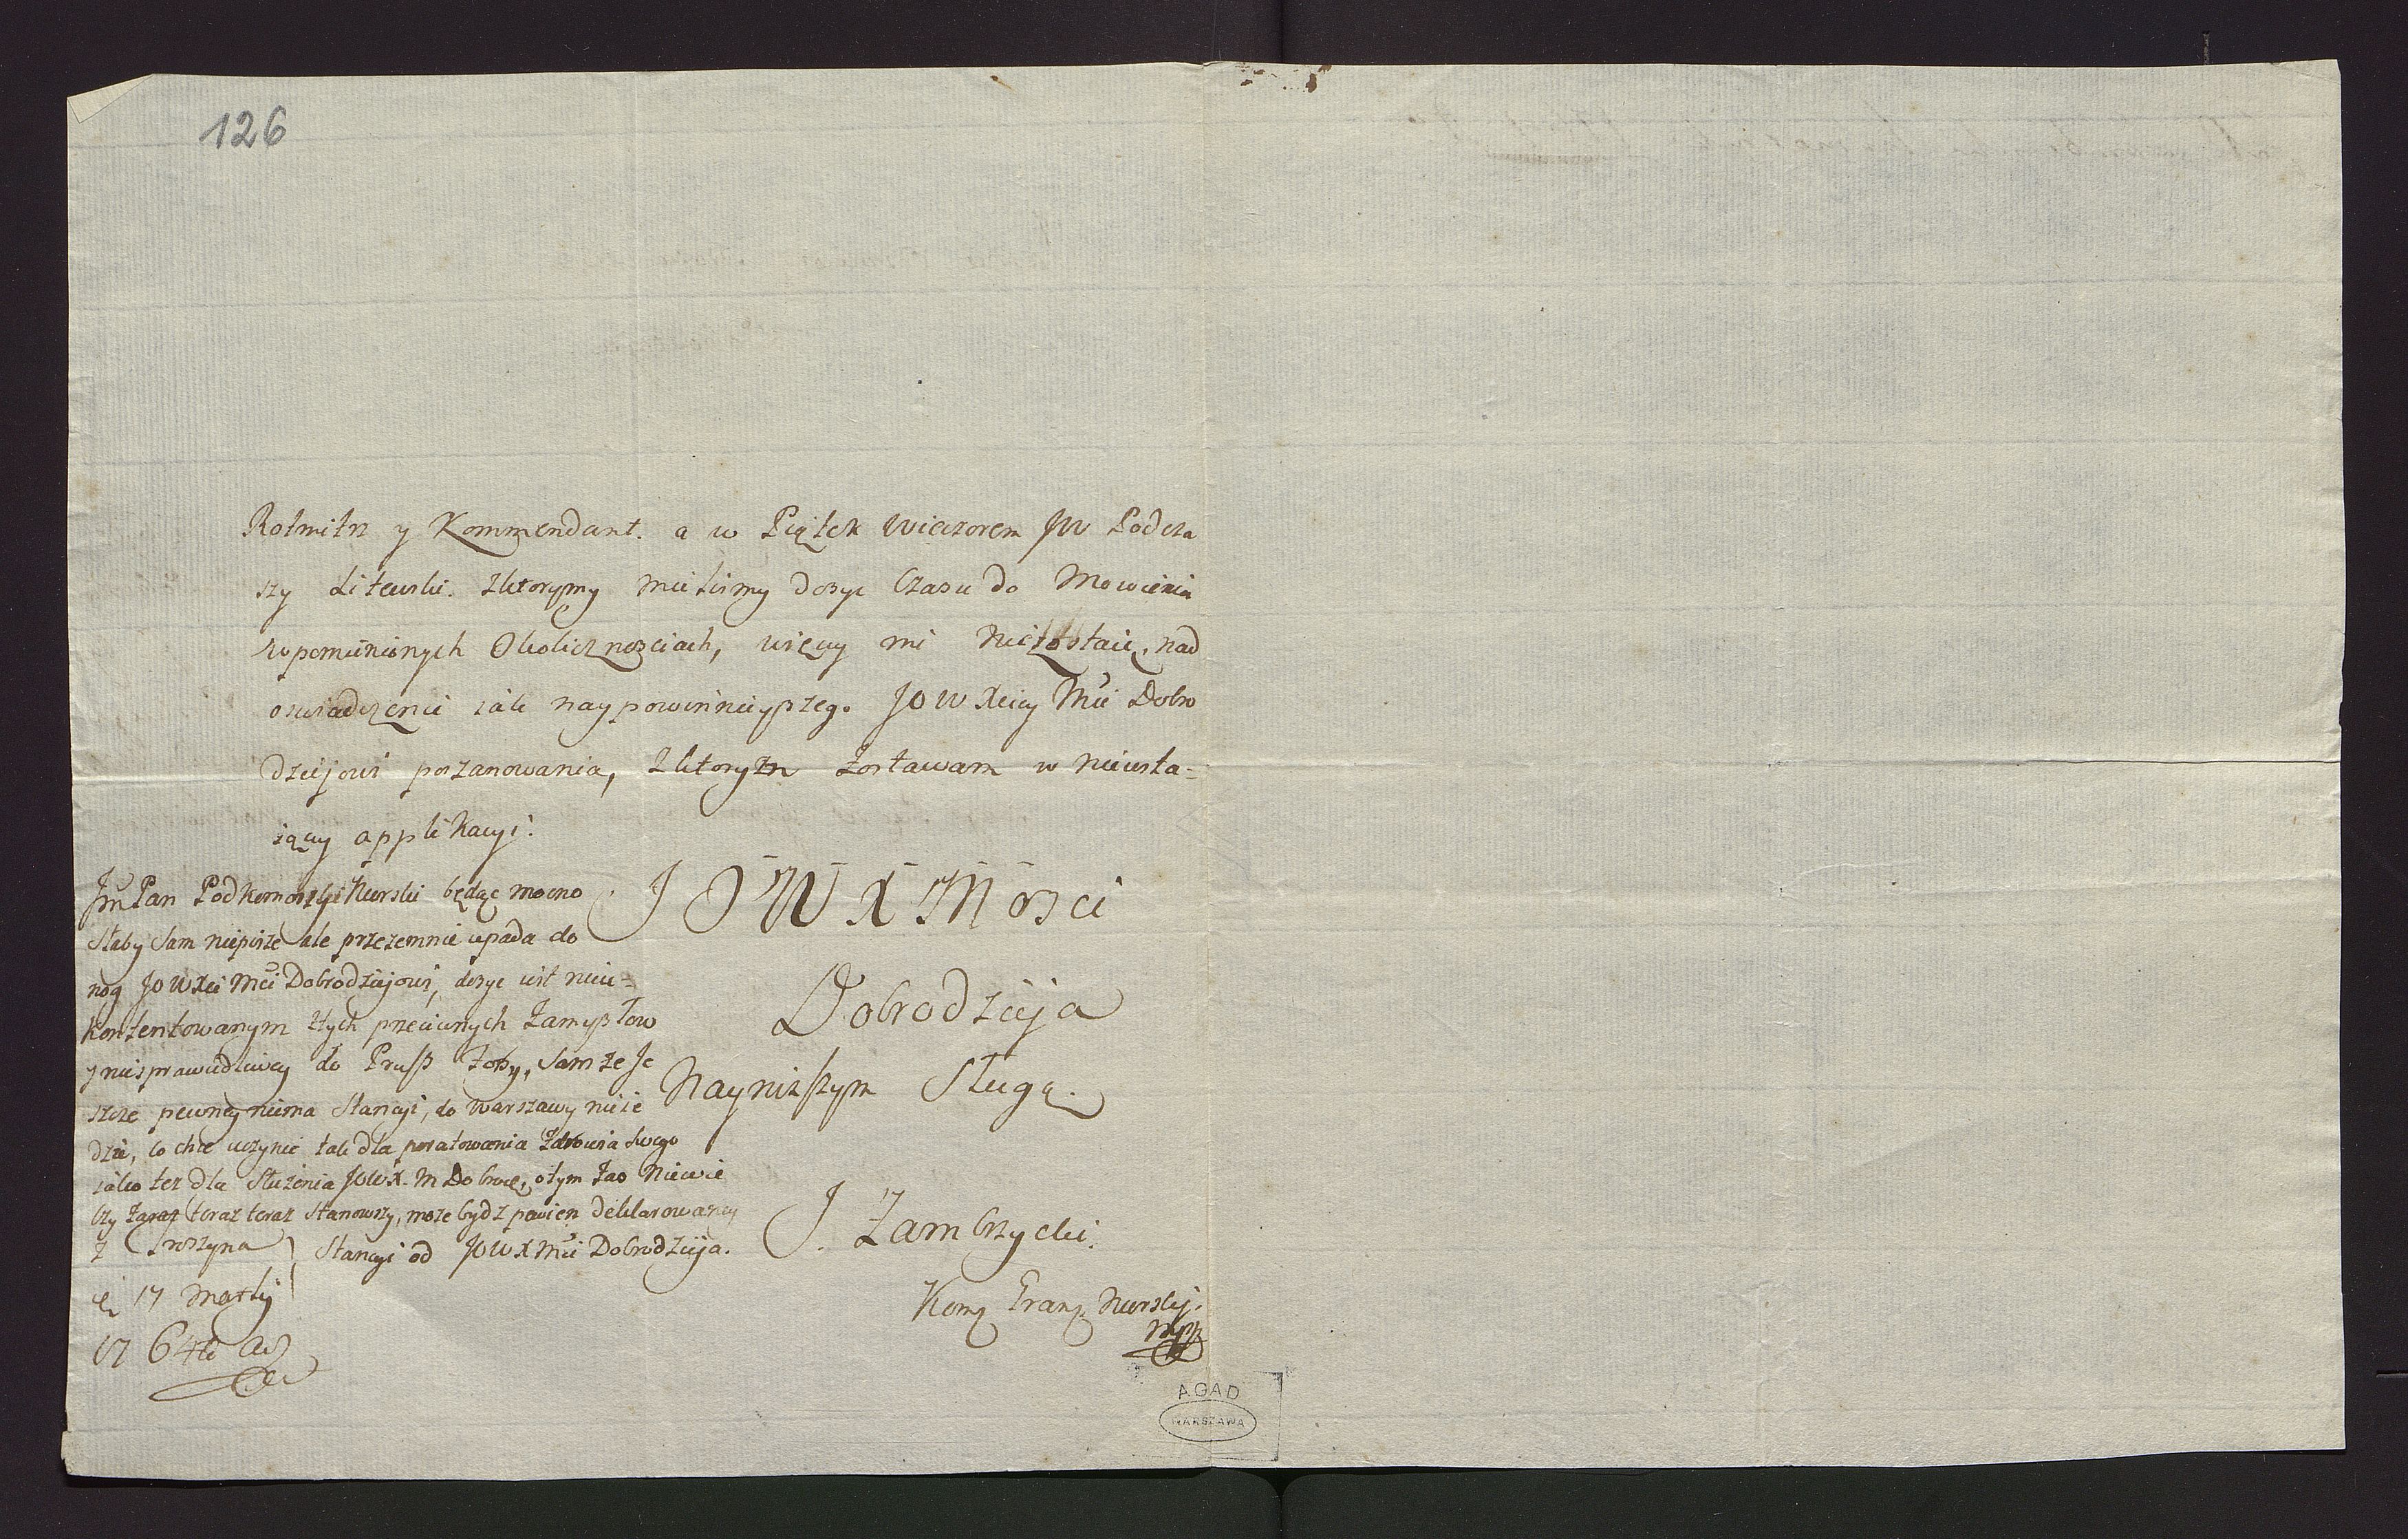 126
Rotmitrz y Kommendant. a w Piątek wieczorem JW Podcza
szy Litewski. zktorymy mielismy dosyc Czasu do Mowienia
wpomnionych Okolicznosciach, więcy mi niezostaie, nad
oswiadczenie iak naypowinnieyszego JOWXcicy Mci Dobro
dziejowi poszanowania, zktorym zostawam w nieusta=
iącey applikacyi.
JOWXMosci
Dobrodzieja
Nayniższym Sługą.
J. Zambrzycki.
Kom Gran Nurskij.
mpp
Jm Pan Podkomorzy Nurski będąc mocno
słaby sam niepisze ale przezemnie upada do
nog JOWXci Mci Dobrodziejowi, dosyc iest nieu=
kontentowanym ztych przeciwnych Zamysłow
y niesprawiedliwey do Pruss zoby, sam ze Je
szcze pewney niema Stancyi, do Warszawy nieie
dzie, co chce uczynic tak dla poratowania Zdrowia swego
iako tez dla Słuzenia JOWX. M Dobrce, otym zas niewie
czy zaraz teraz teraz stanowszy, moze bydz pewien deklarowaney
Stancyi od JOWXMci Dobrodzieja.
z Broszyna
17 Martij
1764
AGAD
WARSZAWA